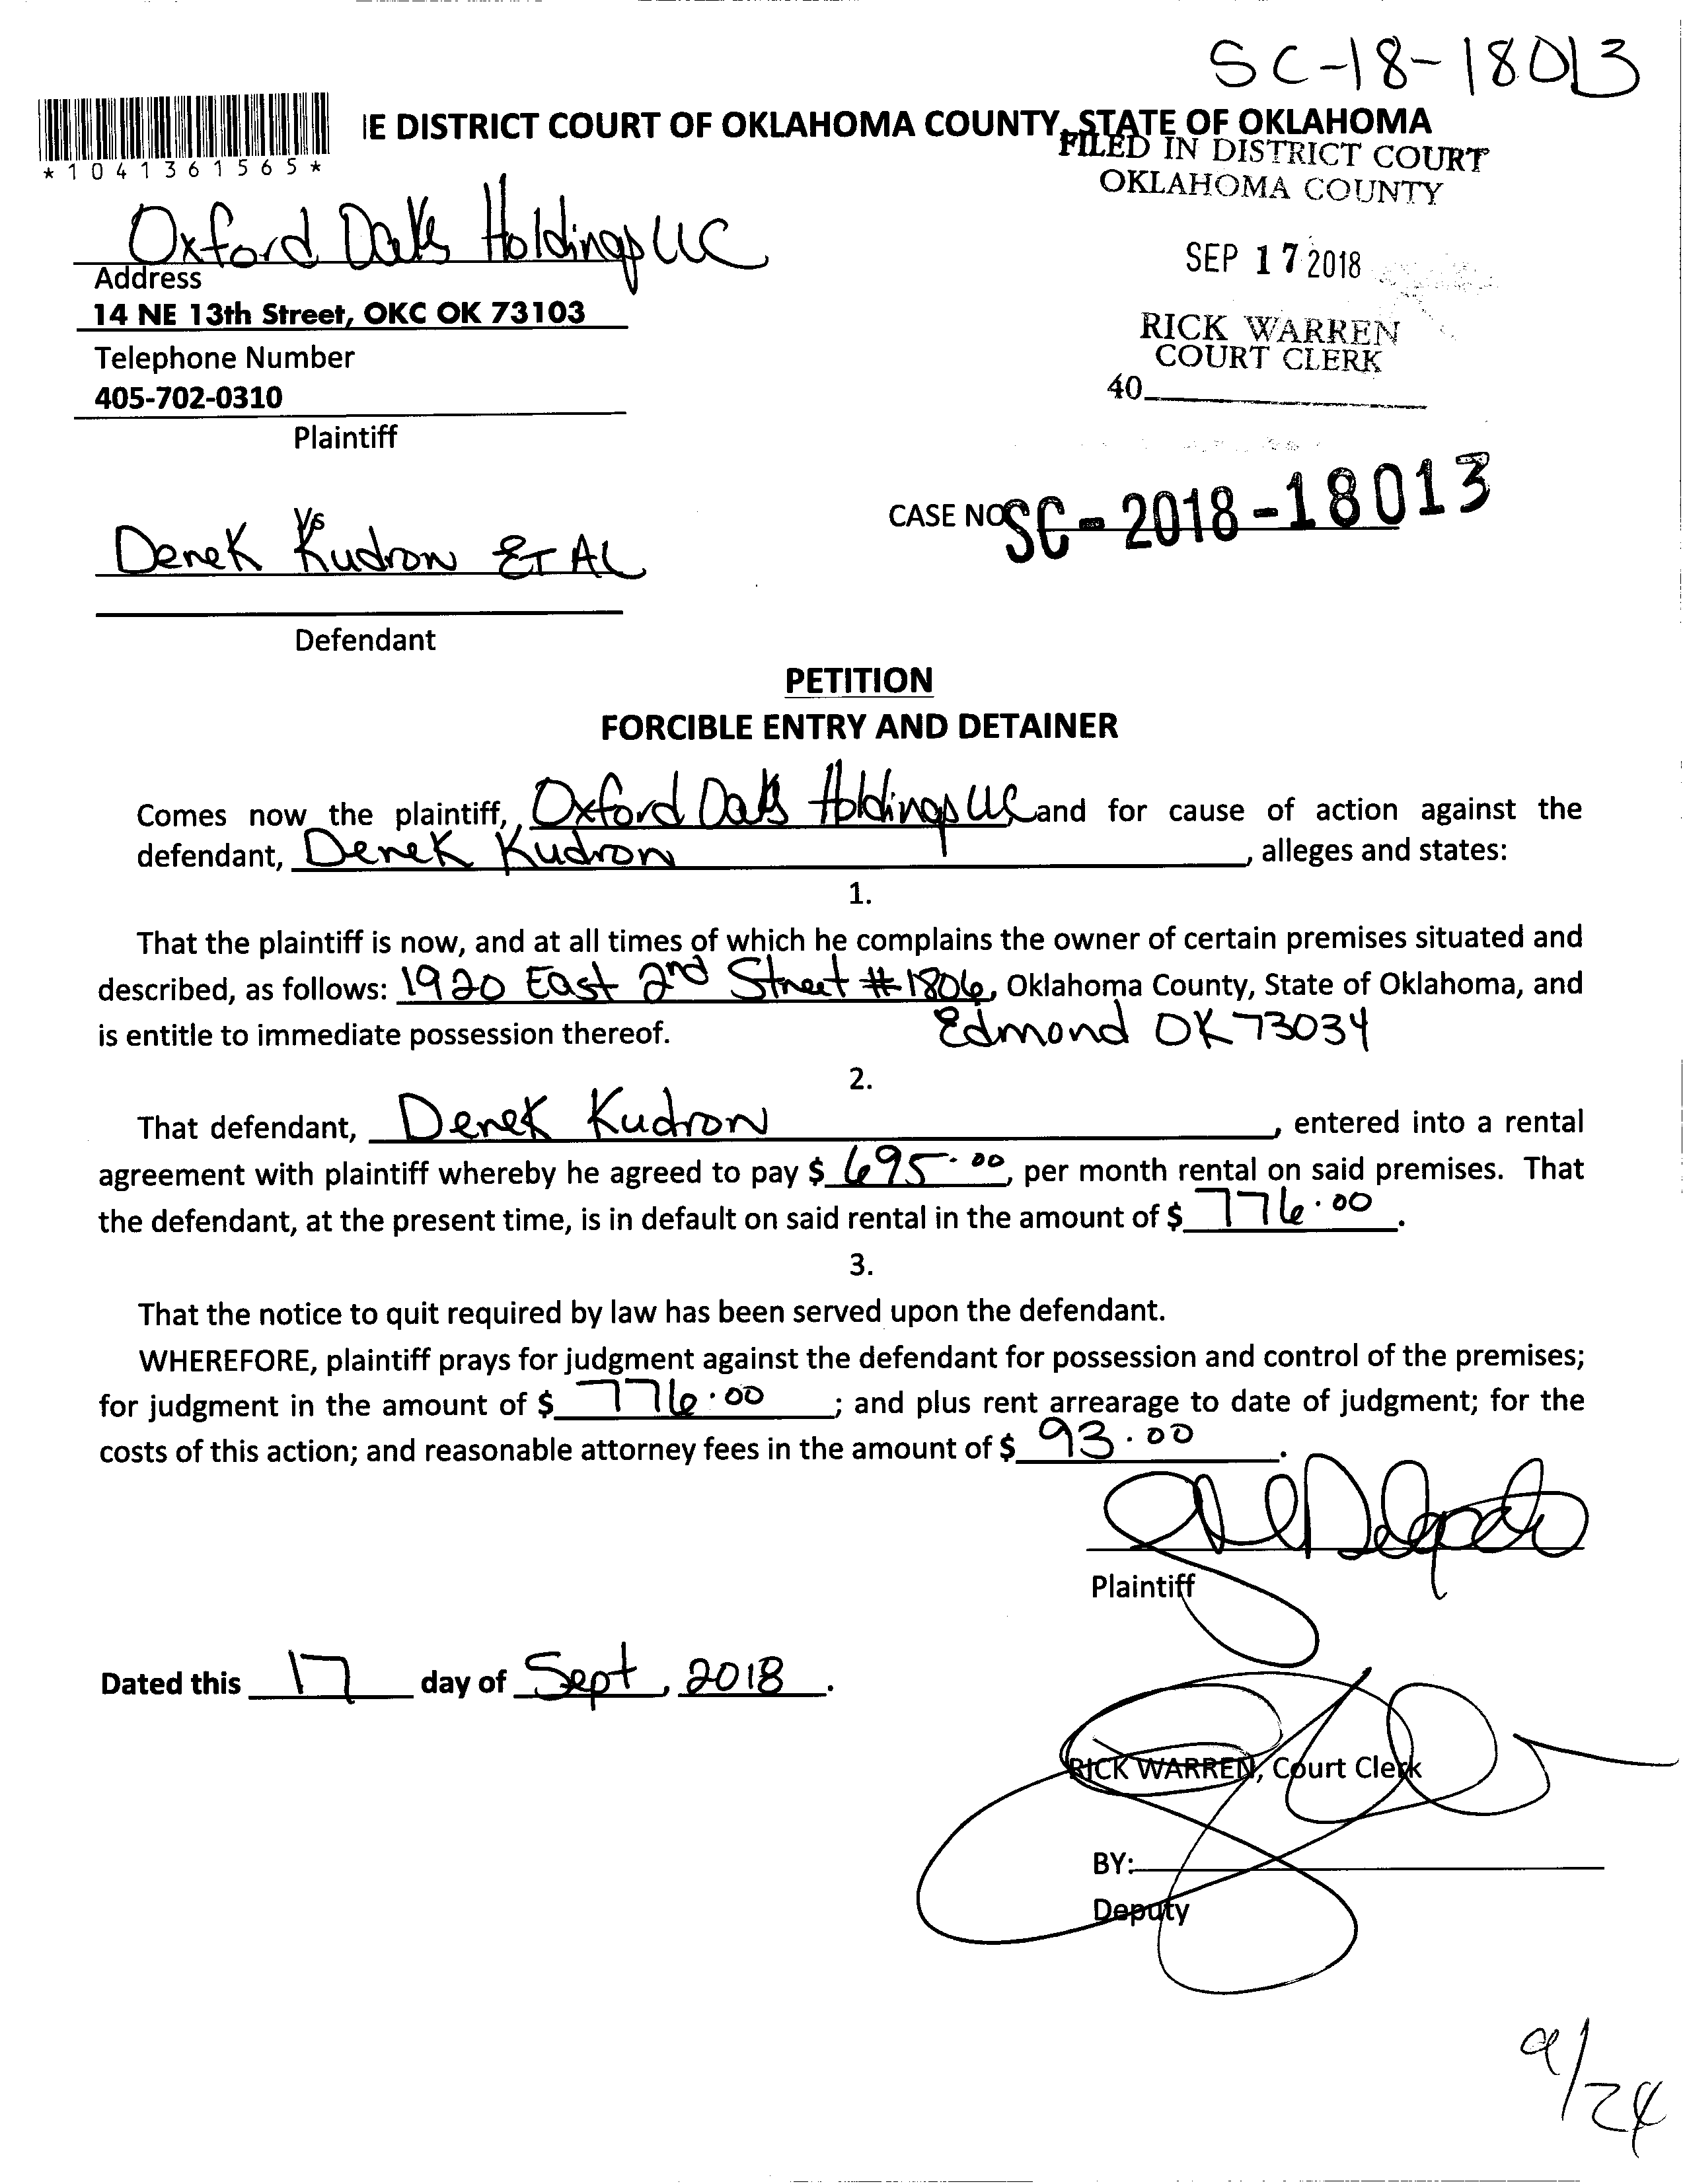 SC-18-18013
*1041361565*
IE DISTRICT COURT OF OKLAHOMA COUNTY, STATE OF OKLAHOMA
FILED IN DISTRICT COURT
OKLAHOMA COUNTY
Oxford Oaks Holdings LLC
Address
14 NE 13th Street, OKC OK 73103
Telephone Number
405-702-0310
Plaintiff
SEP 17 2018
RICK WARREN
COURT CLERK
40
Vs
Derek Kudron ET AL
Defendant
CASE NO SC-2018-18013
PETITION
FORCIBLE ENTRY AND DETAINER
Comes now the plaintiff, Oxford Oaks Holdings LLC and for cause of action against the
defendant, Derek Kudron, alleges and states:
1.
That the plaintiff is now, and at all times of which he complains the owner of certain premises situated and
described, as follows: 1920 East 2nd Street #1806, Oklahoma County, State of Oklahoma, and
is entitle to immediate possession thereof. Edmond OK 73034
2.
That defendant, Derek Kudron, entered into a rental
agreement with plaintiff whereby he agreed to pay $ 695.00, per month rental on said premises. That
the defendant, at the present time, is in default on said rental in the amount of $ 776.00.
3.
That the notice to quit required by law has been served upon the defendant.
WHEREFORE, plaintiff prays for judgment against the defendant for possession and control of the premises;
for judgment in the amount of $ 776.00; and plus rent arrearage to date of judgment; for the
costs of this action; and reasonable attorney fees in the amount of $ 93.00.
Plaintiff
Dated this 17 day of Sept, 2018.
RICK WARREN, Court Clerk
BY:
Deputy
9/24